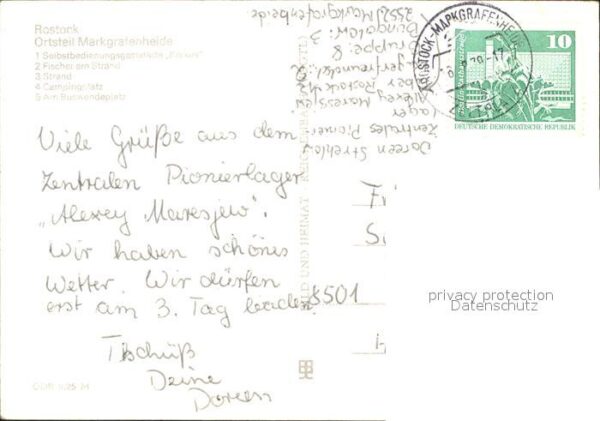 Rostock
Ortsteil Markgrafenheide
1 Selbstbedienungsgaststätte
2 Fischer am Strand
3 Strand
4 Campingplatz
5 Am Buswendeplatz
Viele Grüße aus dem
Zentralen Pionierlager
„Alexey Maresjew".
Wir haben schönes
Wetter. Wir dürfen
erst am 3. Tag baden.
Tschüß
Deine
Doreen
DDR
BILD UND HEIMAT
Doreen Strehlow
Zentrales Pionier
lager
Alexey Maresjew
Rostock
Gruppe 8
Bungalow: 3
2552 Markgrafenheide
ROSTOCK-MARKGRAFENHEIDE
10
DEUTSCHE DEMOKRATISCHE REPUBLIK
8501
privacy protection
Datenschutz